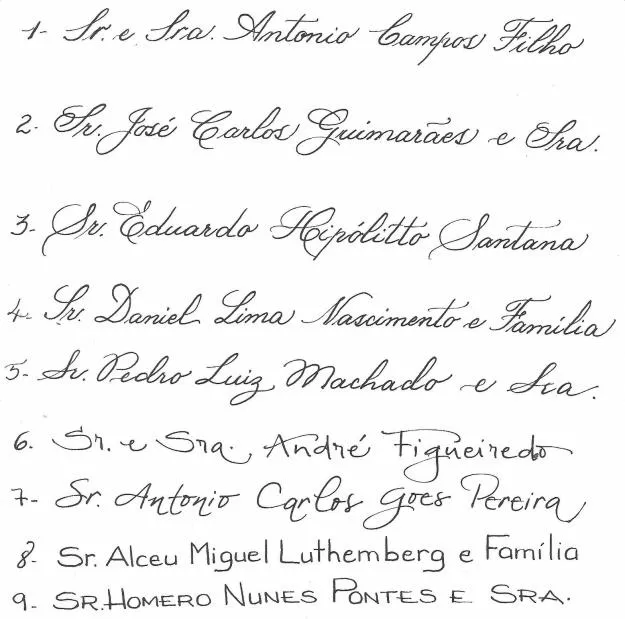 1- Sr. e Sra. Antonio Campos Filho
2. Sr. José Carlos Guimarães e Sra.
3- Sr. Eduardo Hipólitto Santana
4- Sr. Daniel Lima Nascimento e Família
5- Sr. Pedro Luiz Machado e Sra.
6. Sr. e Sra. André Figueiredo
7- Sr. Antonio Carlos Goes Pereira
8- Sr. Alceu Miguel Luthemberg e Família
9- SR. HOMERO NUNES PONTES E SRA.